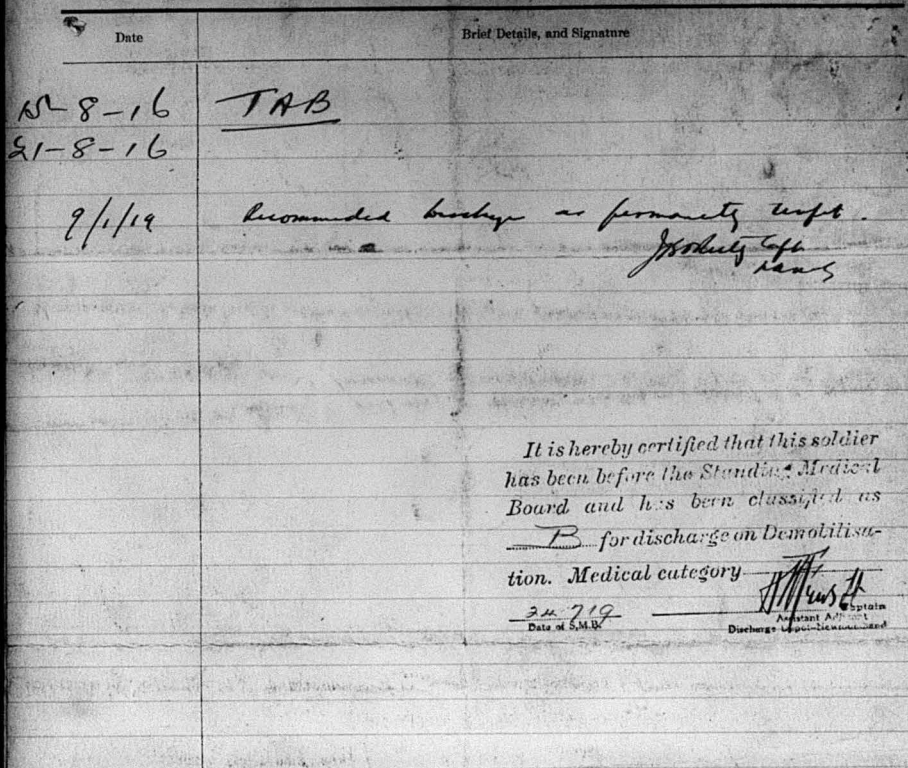 Date Brief Details, and Signature
15-8-16 TAB
21-8-16
9/1/19 Recommended as permanently unfit.
Capt
It is hereby certified that this soldier
has been before the Standing Medical
Board and has been classified as
B for discharge on Demobilisa-
tion. Medical category
24 719
Captain
Date of S.M.B. Assistant
Discharge